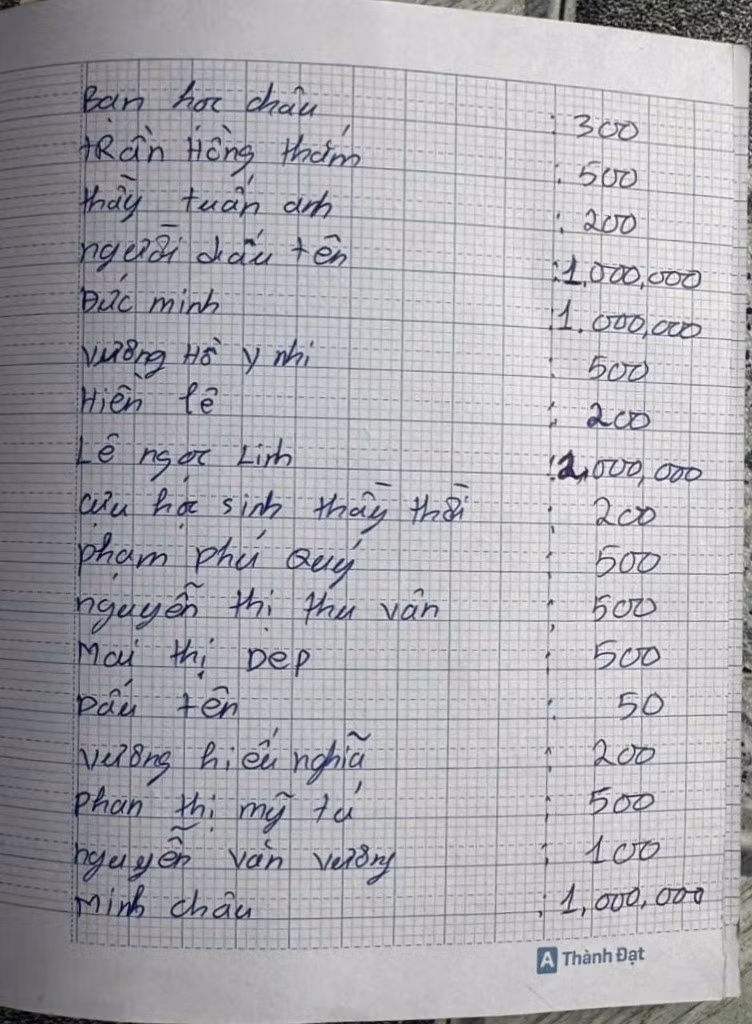 Bạn học châu : 300
tRần Hồng thắm : 500
thầy tuấn anh : 200
người dấu tên : 1,000,000
Đức minh : 1.000,000
vương Hồ y nhi : 500
Hiền lê : 200
Lê ngọc Linh : 2,000,000
cựu học sinh thầy thời : 200
phạm phú Quý : 500
nguyễn thị thu vân : 500
Mai thị Đẹp : 500
Dấu tên : 50
vương hiếu nghĩa : 200
phan thị mỹ tú : 500
nguyễn văn vương : 100
minh châu : 1,000,000
A Thành Đạt